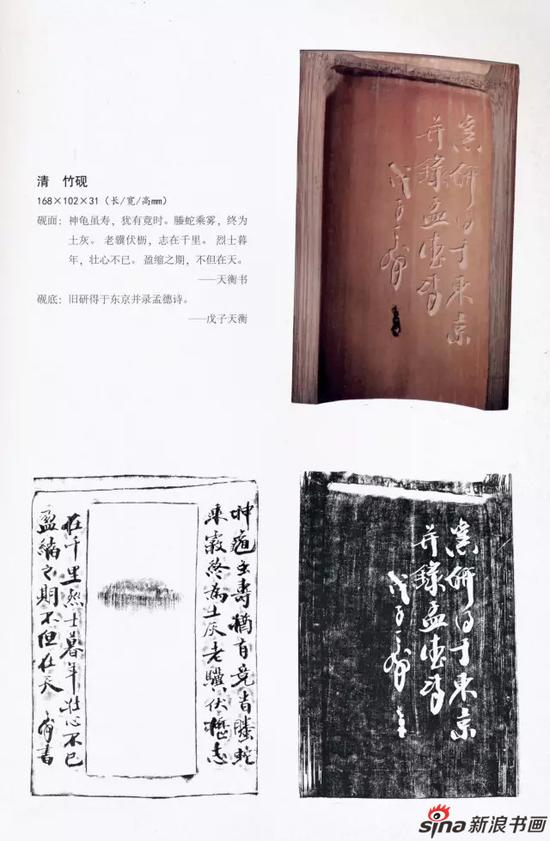 清 竹砚
168×102×31（长/宽/高mm）
砚面：神龟虽寿，犹有竟时。螣蛇乘雾，终为
土灰。 老骥伏枥，志在千里。 烈士暮
年，壮心不已。 盈缩之期，不但在天。
——天衡书
砚底：旧研得于东京并录孟德诗。
——戊子天衡
舊研得于東京
并錄孟德詩
戊子天衡
神龜虽壽犹有竟时螣蛇
乘霧終為土灰老驥伏櫪志
在千里烈士暮年壯心不已
盈縮之期不但在天 衡書
舊研得于東京
并錄孟德詩
戊子天衡
sina新浪书画